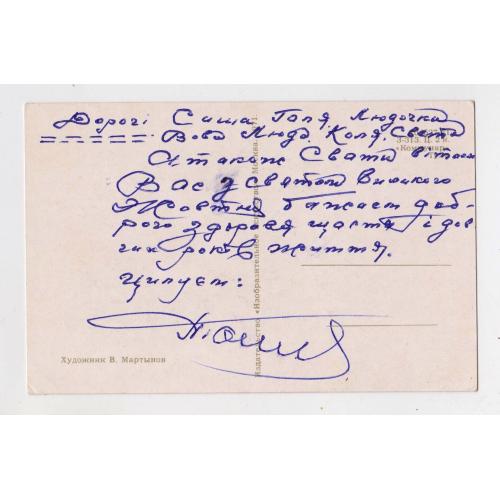 Дорогі Саша Галя Людочка
Вова Люда Коля, Свєта
А також Свати вітаєм
Вас з святом Великого
Жовтня бажаєм доб-
рого здоровя щастя і дов-
гих років життя.
Цилуєм:
Художник В. Мартынов
Издательство «Изобразительное искусство». Москва. 71.
З-313. Ц. 2 к.